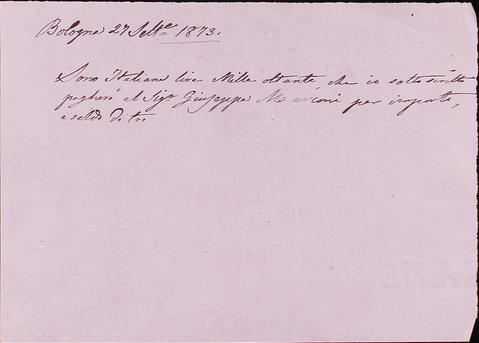 Bologna 27 Settᵉ 1873.
Sono Italiane lire Mille ottanta che io sottoscritto
pagherò al Sigʳ Giuseppe per importo,
e saldo di tre